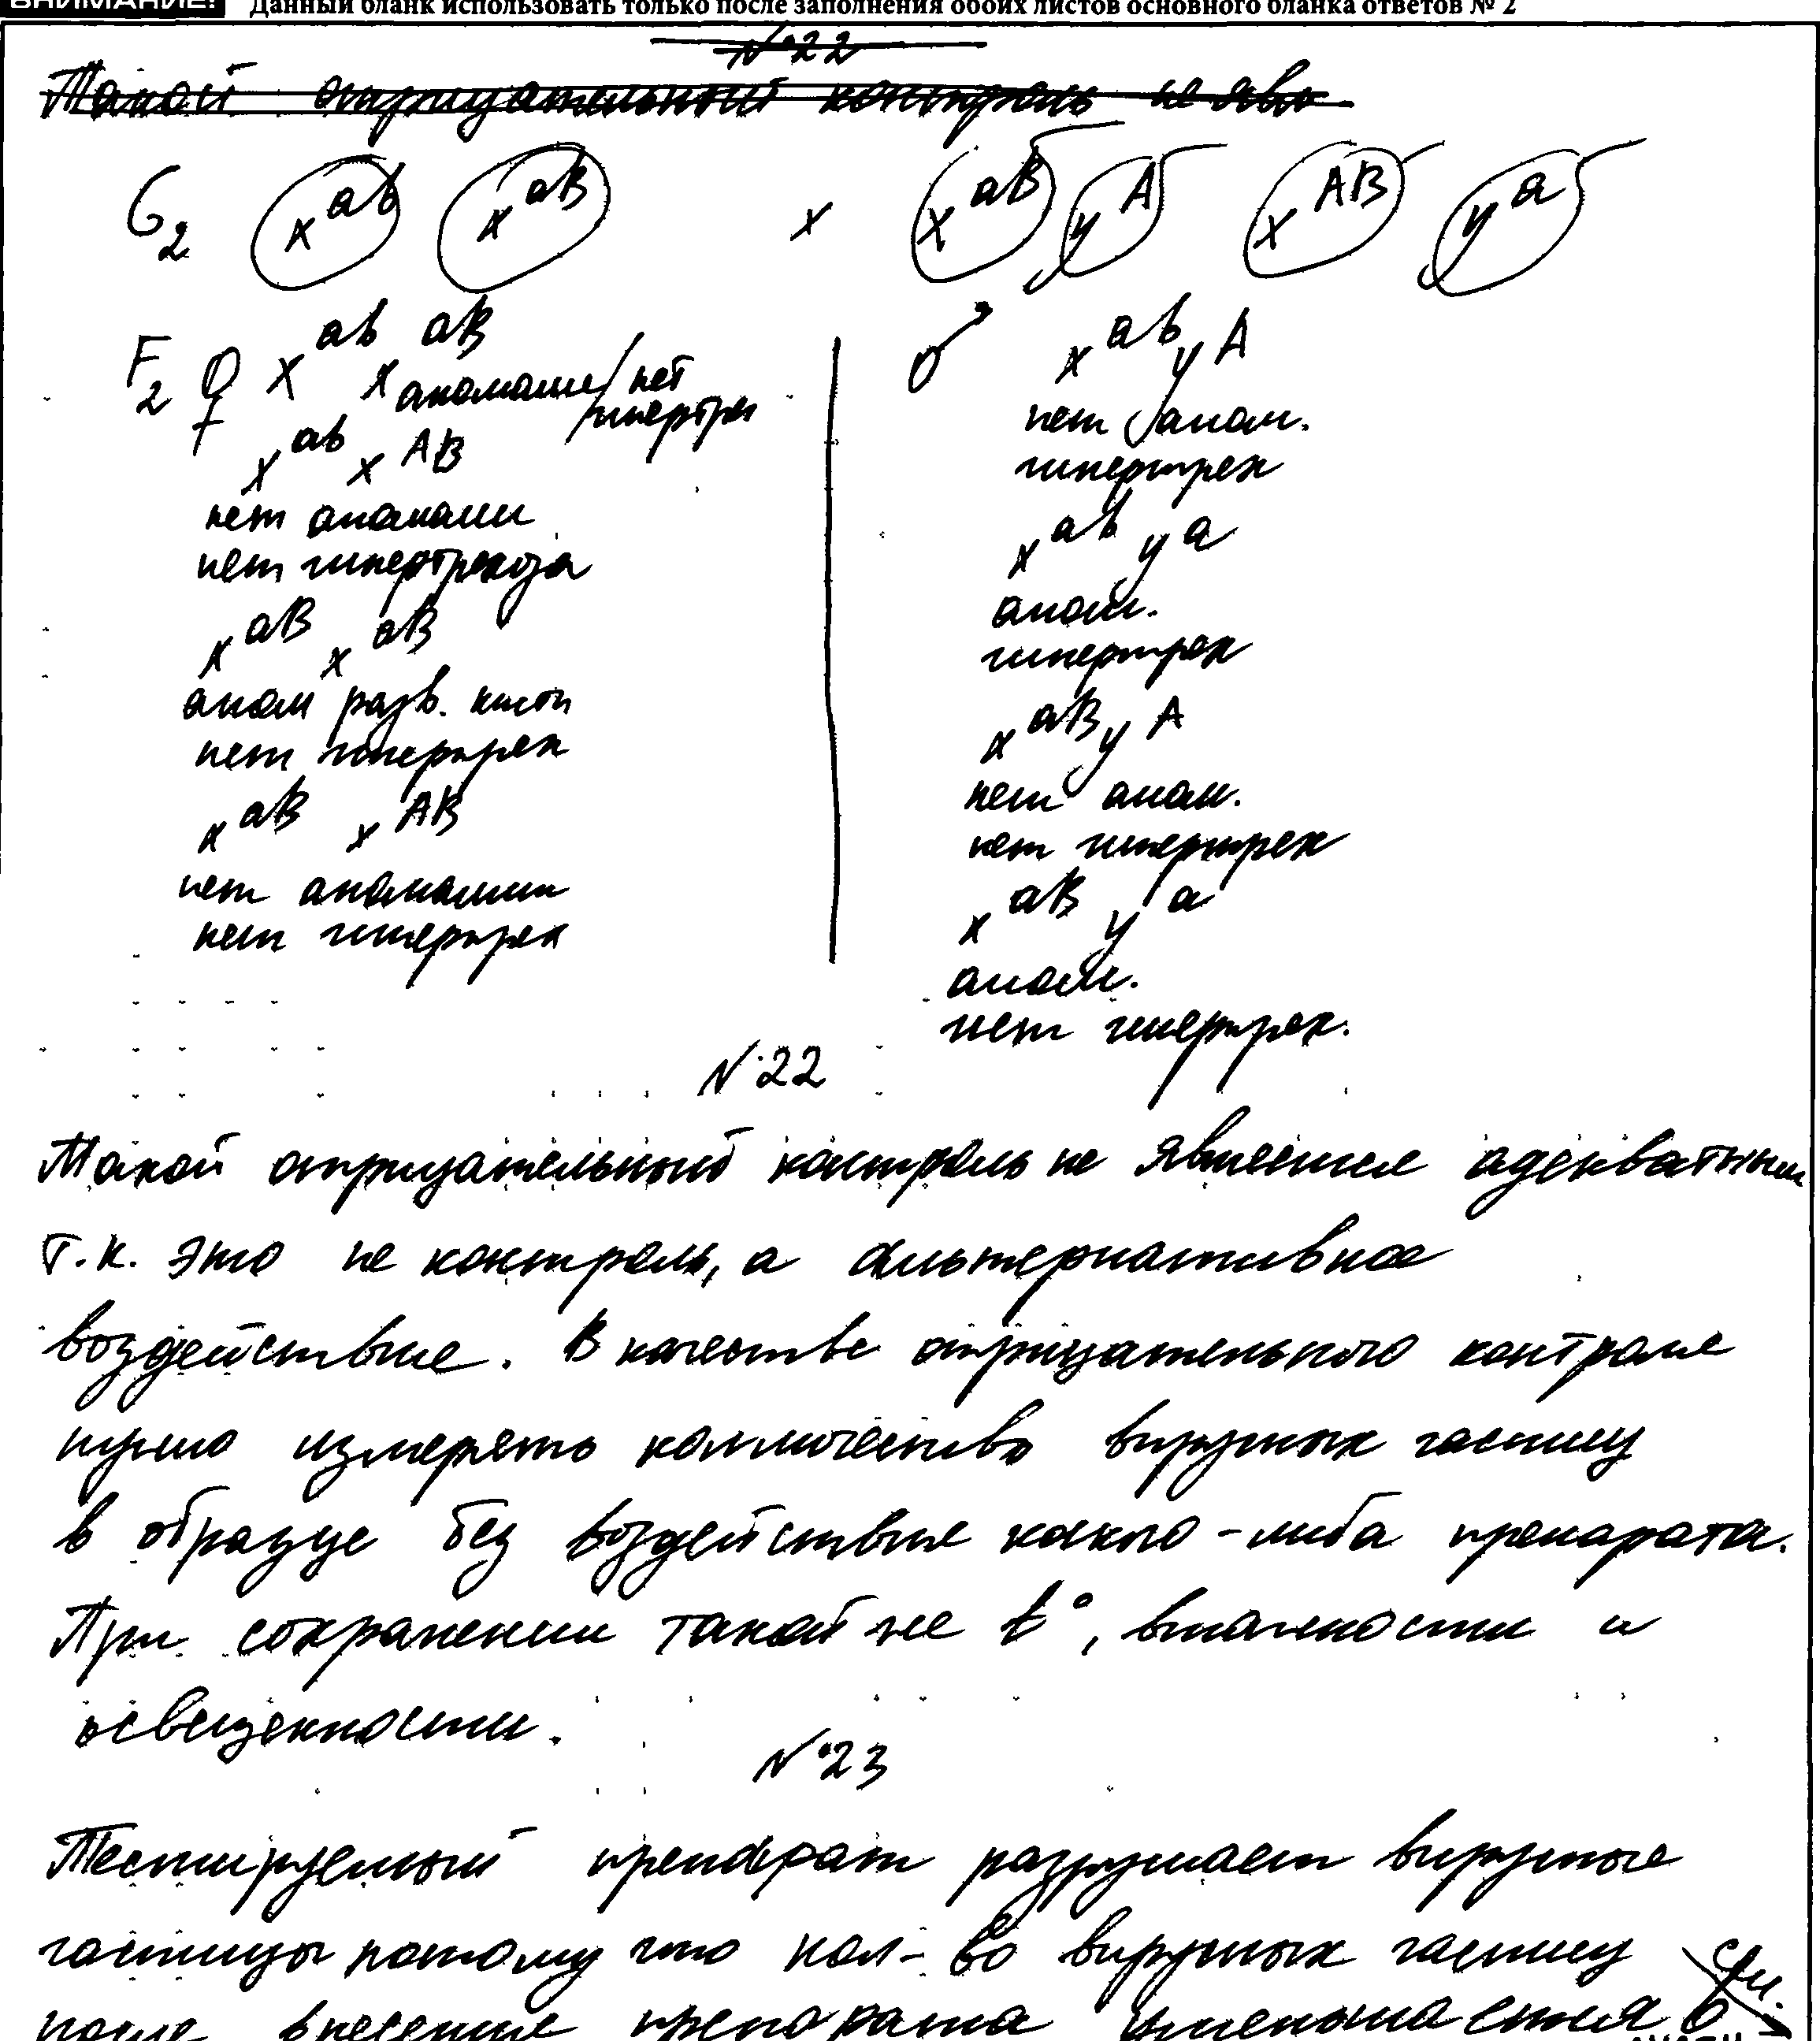 ВНИМАНИЕ! Данный бланк использовать только после заполнения обоих листов основного бланка ответов № 2
№22
Такой отрицательный контроль не явл
G2 x^ab x^aB x x^aB y^A x^AB y^a
F2 ♀ x^ab x^aB аномалия/нет гипертрих
x^ab x^AB
нет аномалии
нет гипертрихоза
x^aB x^aB
аном разв. кисти
нет гипертрих
x^aB x^AB
нет аномалии
нет гипертрих
♂ x^ab y^A
нет аном.
гипертрех
x^ab y^a
аном.
гипертрех
x^aB y^A
нет аном.
нет гипертрех
x^aB y^a
аном.
нет гипертрех.
№22
Такой отрицательный контроль не является адекватным
т.к. это не контроль, а альтернативное
воздействие. В качестве отрицательного контроля
нужно измерять колличество вирусных частиц
в образце без воздействия какого-либо препарата.
При сохранении такой же t°, влажности и
освещенности.
№23
Тестируемый препарат разрушает вирусные
частицы потому что кол-во вирусных частиц
после внесения препарата уменьшается
См.